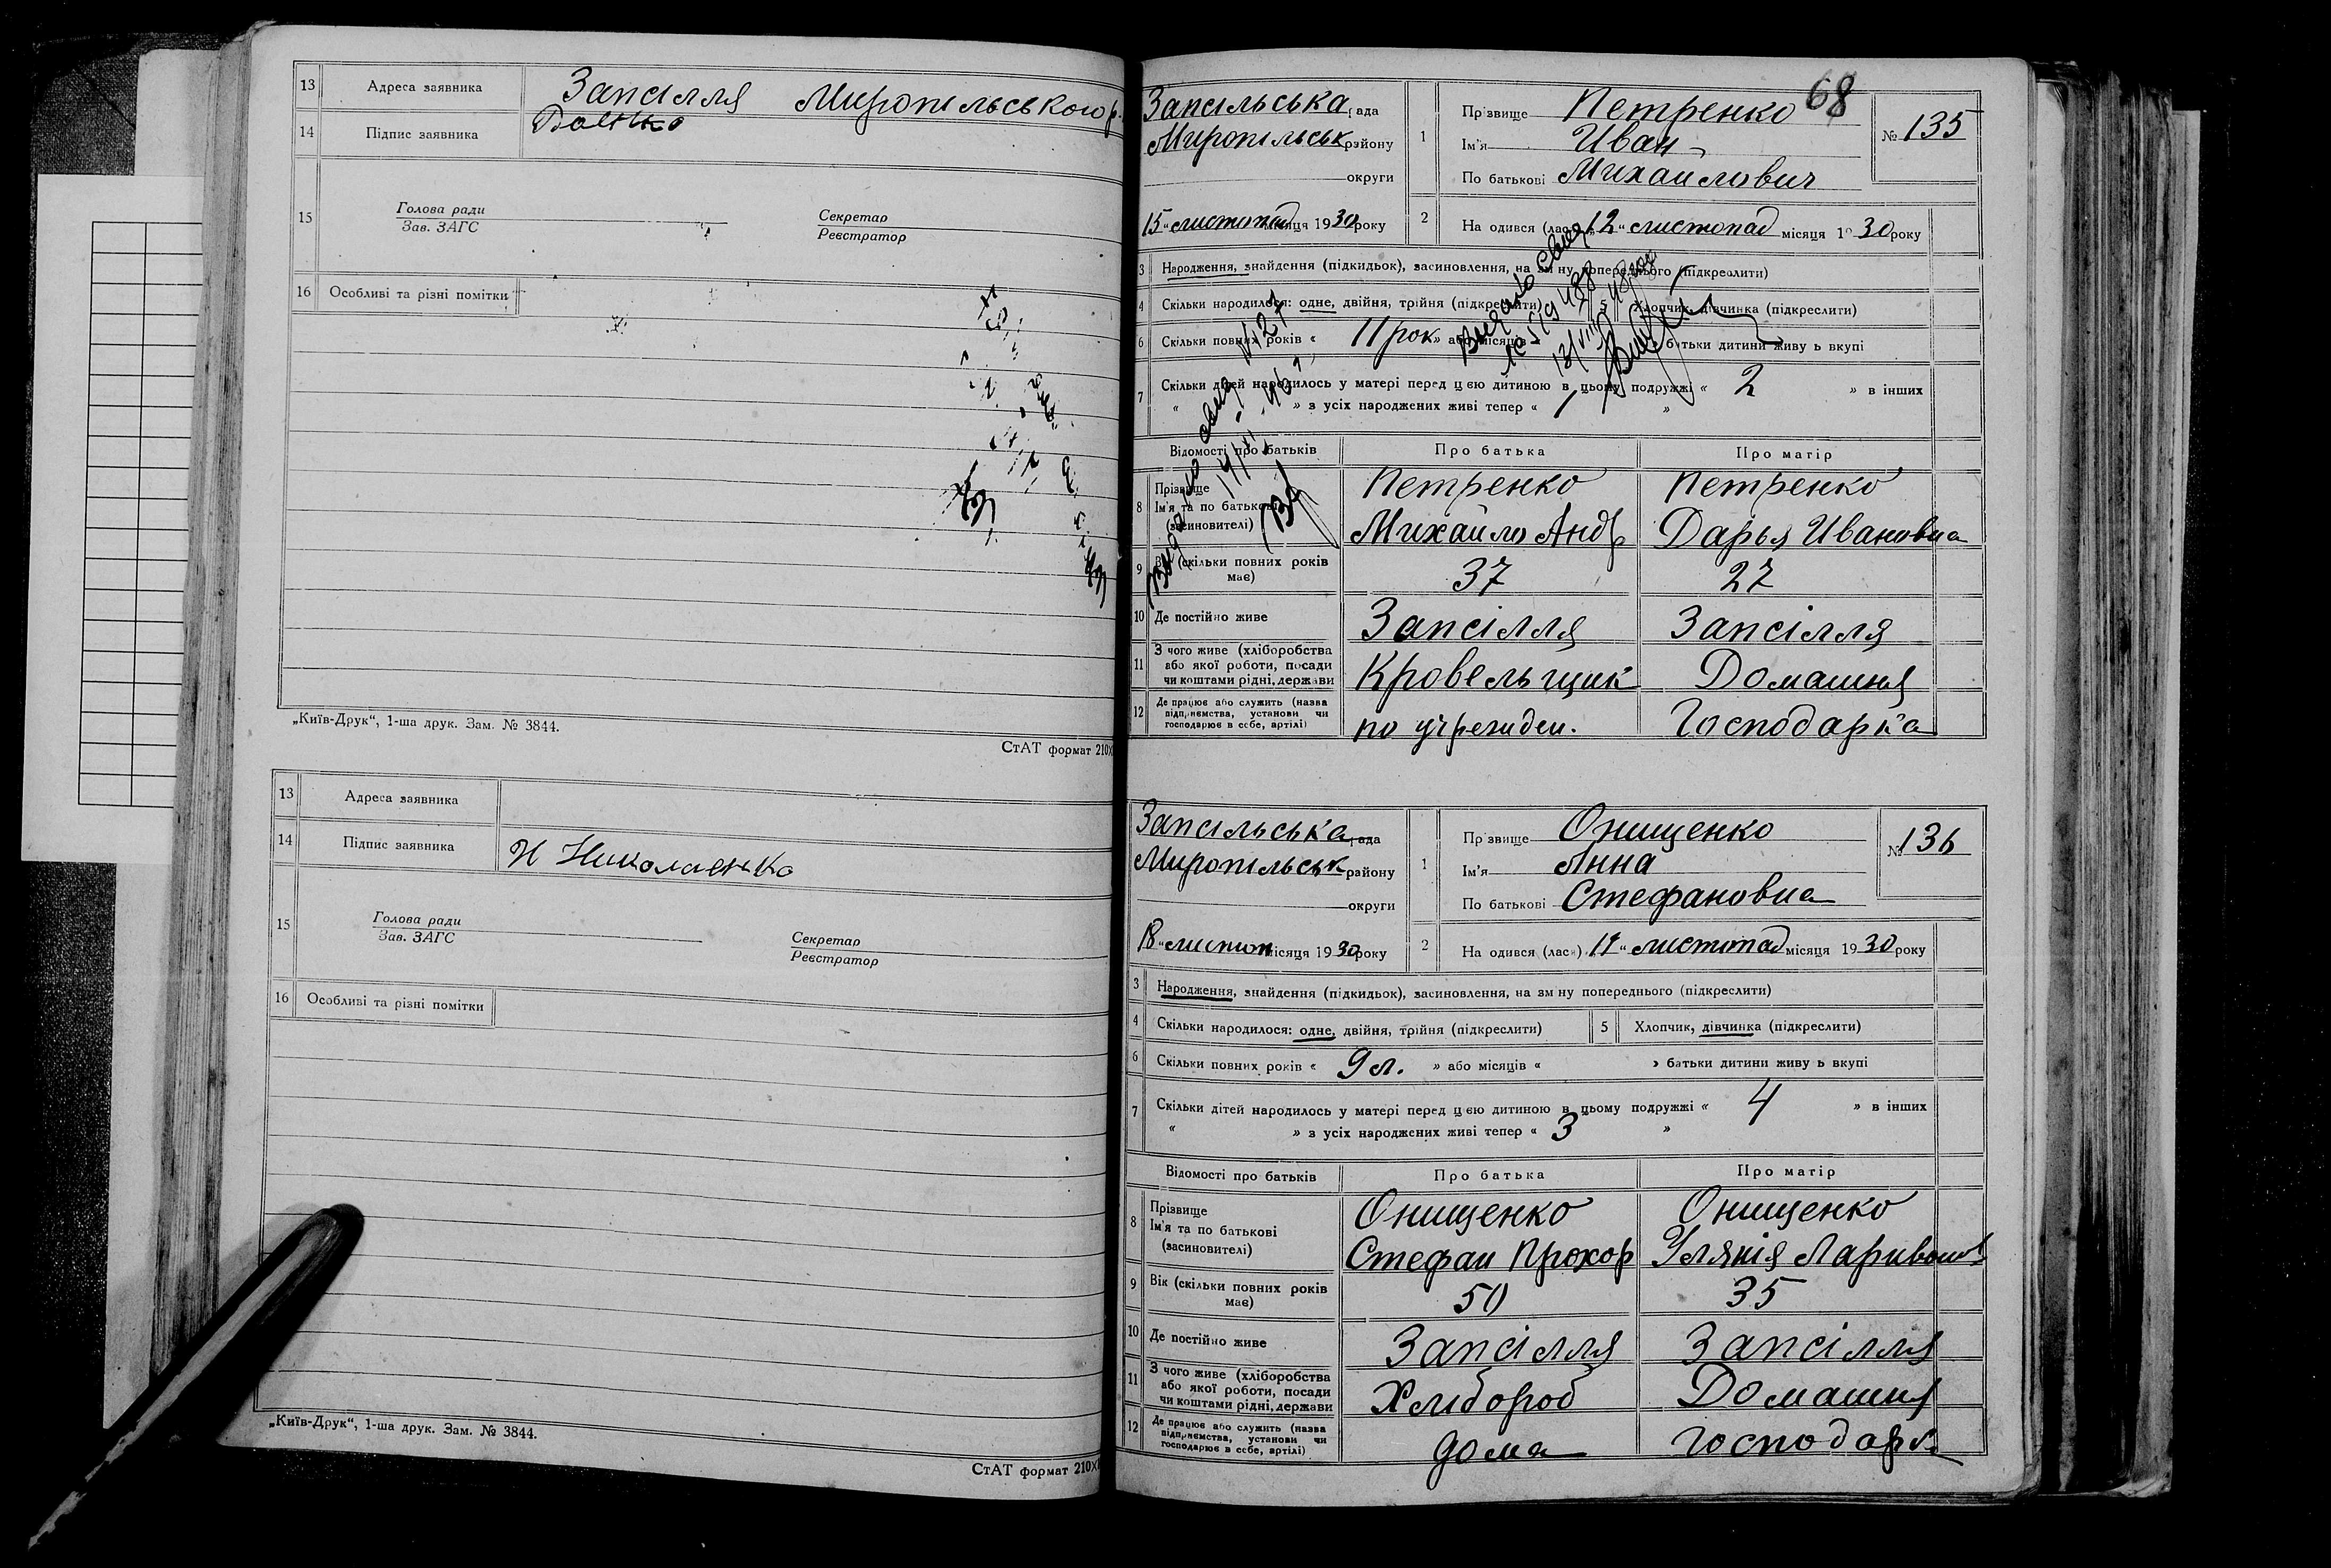 13 Адреса заявника Запсілля Миропільського р.
14 Підпис заявника
15 Голова ради Секретар
Зав. ЗАГС Реєстратор
16 Особливі та різні помітки
„Київ-Друк“, 1-ша друк. Зам. № 3844.
СтАТ формат 210х
13 Адреса заявника
14 Підпис заявника Н Николаенко
15 Голова ради Секретар
Зав. ЗАГС Реєстратор
16 Особливі та різні помітки
„Київ-Друк“, 1-ша друк. Зам. № 3844.
СтАТ формат 210х
68
Запсільська рада 1 Прізвище Петренко № 135
Миропільськ району Ім'я Иван
округи По батькові Михаилович
15 „ листопад місяця 1930 року 2 На одився (лась) „12“ листопад місяця 1930 року
3 Народження, знайдення (підкидьок), засиновлення, на зм ну попереднього (підкреслити)
4 Скільки народилося: одне, двійня, трійня (підкреслити) 5 Хлопчик, дівчинка (підкреслити)
6 Скільки повних років « 11 рок » або місяців « батьки дитини живу ь вкупі
7 Скільки дітей народилось у матері перед цєю дитиною в цьому подружжі « 2 » в інших
« » з усіх народжених живі тепер « 1 »
Видано свид
№ 127
Відомості про батьків Про батька Про матір
8 Прізвище Петренко Петренко
Ім'я та по батькові Михайло Андр Дарья Ивановна
(засиновителі)
9 Вік (скільки повних років має) 37 27
10 Де постійно живе Запсілля Запсілля
11 З чого живе (хліборобства або якої роботи, посади чи коштами рідні, держави Кровельщик Домашня
12 Де працює або служить (назва підприємства, установи чи господарює в себе, артілі) по учрежден. Господарка
Запсільська рада 1 Прізвище Онищенко № 136
Миропільськ району Ім'я Анна
округи По батькові Стефановна
18 „ листоп місяця 1930 року 2 На одився (лась) „ “ листопад місяця 1930 року
3 Народження, знайдення (підкидьок), засиновлення, на зм ну попереднього (підкреслити)
4 Скільки народилося: одне, двійня, трійня (підкреслити) 5 Хлопчик, дівчинка (підкреслити)
6 Скільки повних років « 9 л. » або місяців « » батьки дитини живу ь вкупі
7 Скільки дітей народилось у матері перед цєю дитиною в цьому подружжі « 4 » в інших
« » з усіх народжених живі тепер « 3 »
Відомості про батьків Про батька Про матір
8 Прізвище Онищенко Онищенко
Ім'я та по батькові Стефан Прохор Улянія Ларивонов
(засиновителі)
9 Вік (скільки повних років має) 50 35
10 Де постійно живе Запсілля Запсілля
11 З чого живе (хліборобства або якої роботи, посади чи коштами рідні, держави Хлібороб Домашня
12 Де працює або служить (назва підприємства, установи чи господарює в себе, артілі) дома господарка